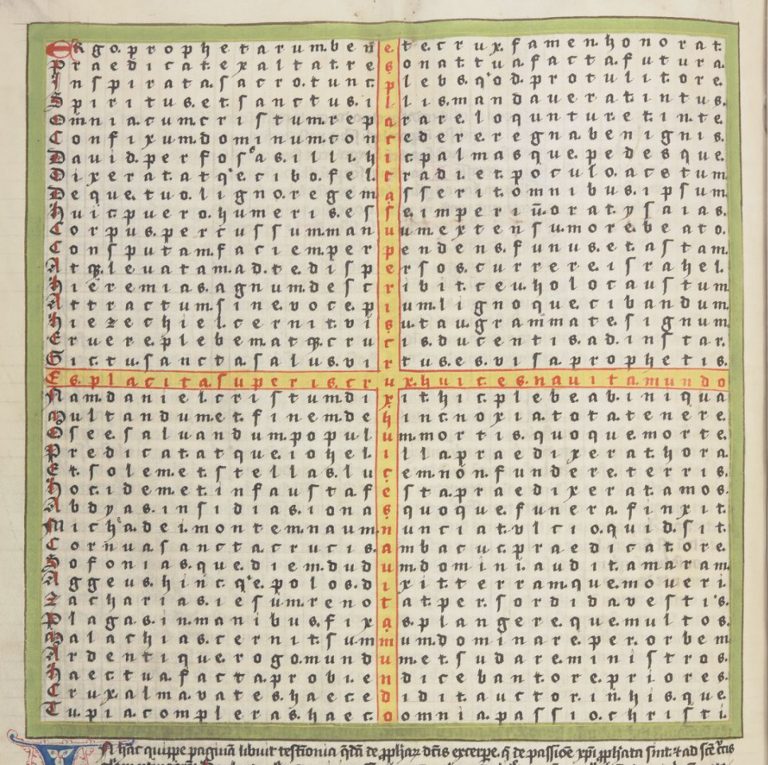 Ergo.prophetarum.beñ e te.crux.famen.honorat.
Praedicat.exaltat.res onat tua.facta.futura.
Inspirata.sacro.tunc.plebs.q°d.protulit ore.
Spiritus.et.sanctus.illis.mandaverat.intus.
Omnia cum cristum.reparare.loquntur et in te.
Confixum.dominum.concedere.regna.benignis.
David.perfosˢas.illi hic palmas que.pedes que.
Dixerat.atq.e cibo.fel.tradi.et poculo.acetum
De que.tuo.ligno.regem asserit omnibus.ipsum
huic puero.humeris.esse.imperiū.orat.ysaias.
Corpus.percussum manuum extensum ore.beato.
Consputam.faciem perpendens.funus.et astam.
Atq.levatam.ad.te.dispersos.currere.israhel.
hieremias.agnum.describit.ceu.holocaustum
Attractum.sine.voce.pium ligno que.cibandum
hiezechiel.cernit.visu tau.grammate signum
Eruere.plebem atq.crucis.ducentis.ad.instar.
Sic tu.sancta.salus.virtus es.visa.prophetis.
Es.placita.superis.crux.huic es.navita.mundo
Nam daniel cristum dixit hic plebe ab.iniqua
Multandum et.finem dehinc noxia.tota tenere.
Osee.salvandum.populum mortis.quoque.morte.
Predicat atque.iohel illa praedixerat hora.
Et solem et stellas.lucem non fundere terris.
hoc idem et.infausta.festa.praedixerat amos.
Abdyas.insidias.ionas quoque.funera.finxit.
Michᵉas dei.montem.naum nunciat.vlcio.quid.sit
Cornua sancta.crucis.ambacuc.praedicat ore.
Sofonias.que.diem dudum domini.audit.amaram.
Aggeus.hinc.q.e.polos.dixit terram.que.moveri.
Zacharias.iesum.renovat per.sordida vestis.
Plagas.in manibus fixas.plangere.que.multos
Malachias.cernit summum dominare.per.orbem
Ardenti que.rogo.mundum et sudare ministros.
haec tua.facta.probi.en.dicebant ore.priores.
Crux alma.vates.haec.edidit auctor.in his.que.
Tu.pia compleras.haec.omnia.passio.christi.
In hac quippe paginā libuit testimonia q̄dā de ꝓphaꝝ dictis excerpe. q̄ de passiōe xp̄i ꝓphata sunt